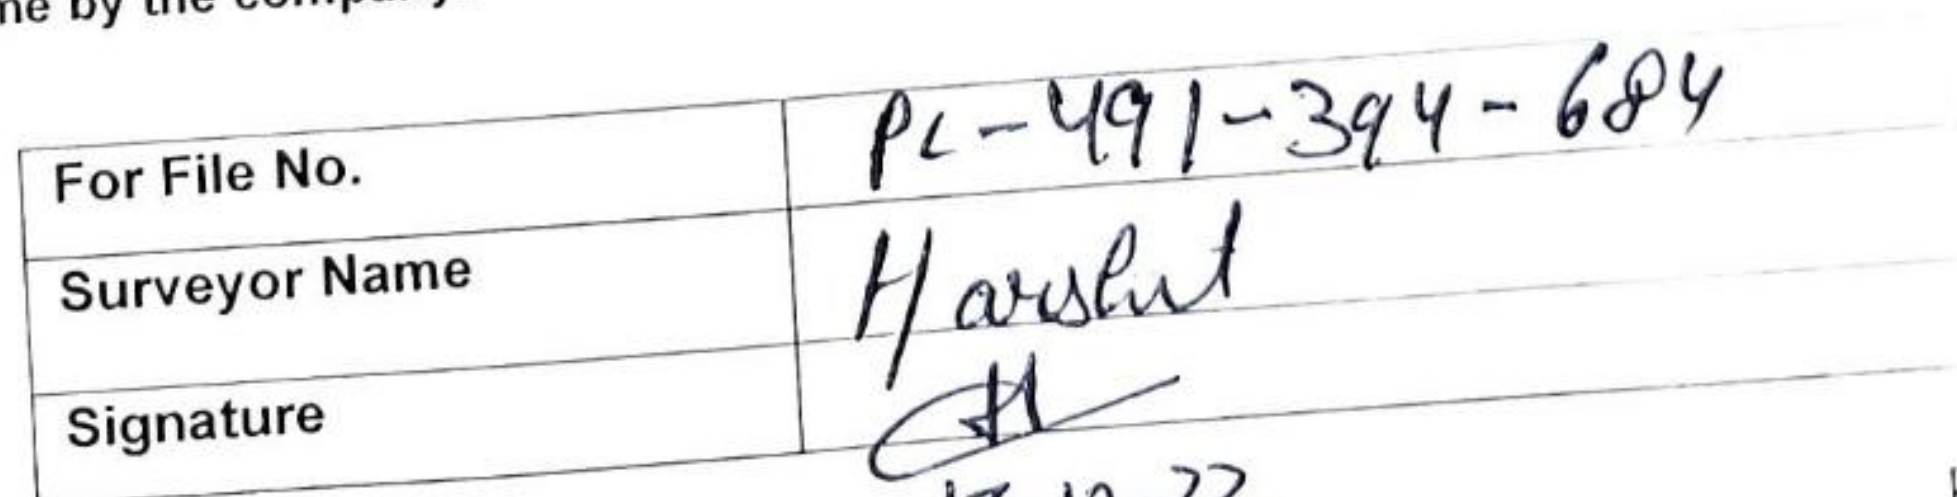 by the company.
For File No. PL-491-394-684
Surveyor Name Harshit
Signature